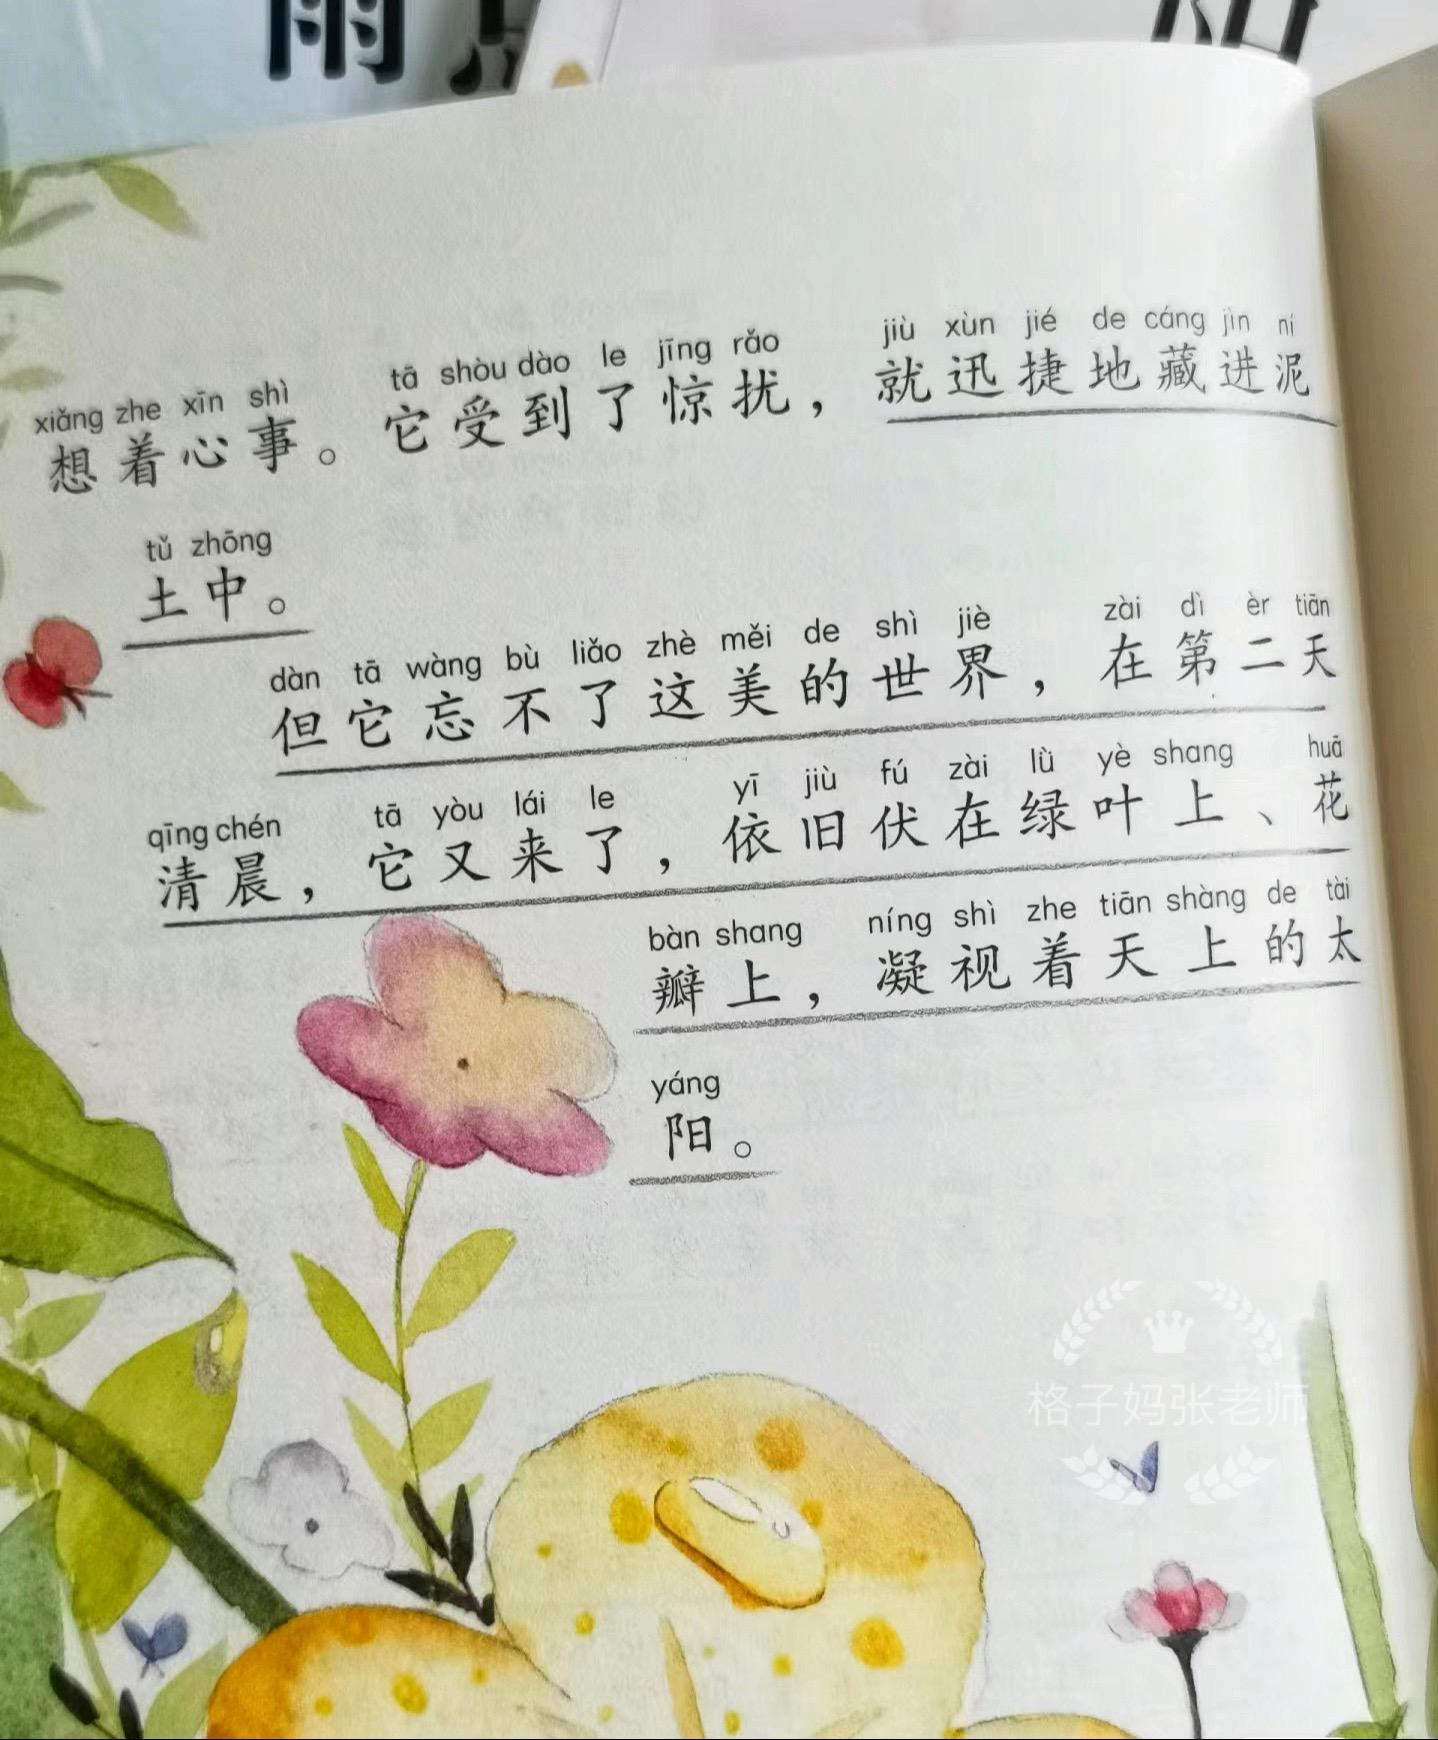 雨
xiǎng zhe xīn shì tā shòu dào le jīng rǎo jiù xùn jié de cáng jìn ní
想着心事。它受到了惊扰，就迅捷地藏进泥
tǔ zhōng
土中。
dàn tā wàng bù liǎo zhè měi de shì jiè zài dì èr tiān
但它忘不了这美的世界，在第二天
qīng chén tā yòu lái le yī jiù fú zài lǜ yè shang huā
清晨，它又来了，依旧伏在绿叶上、花
bàn shang níng shì zhe tiān shàng de tài
瓣上，凝视着天上的太
yáng
阳。
格子妈张老师